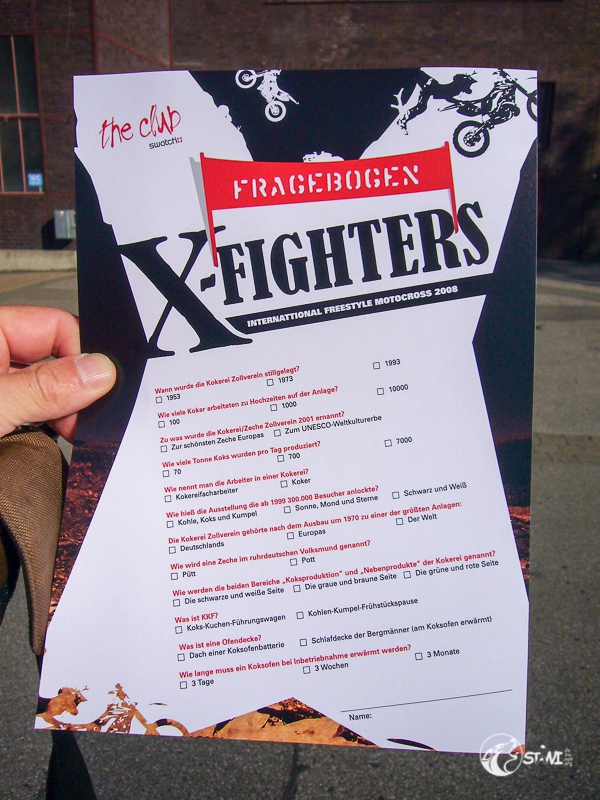 the club
swatch
FRAGEBOGEN
X-FIGHTERS
INTERNATTIONAL FREESTYLE MOTOCROSS 2008
Wann wurde die Kokerei Zollverein stillgelegt?
1953 1973 1993
Wie viele Koker arbeiteten zu Hochzeiten auf der Anlage?
100 1000 10000
Zu was wurde die Kokerei/Zeche Zollverein 2001 ernannt?
Zur schönsten Zeche Europas Zum UNESCO-Weltkulturerbe
Wie viele Tonne Koks wurden pro Tag produziert?
70 700 7000
Wie nennt man die Arbeiter in einer Kokerei?
Kokereifacharbeiter Koker
Wie hieß die Ausstellung die ab 1999 300.000 Besucher anlockte?
Kohle, Koks und Kumpel Sonne, Mond und Sterne Schwarz und Weiß
Die Kokerei Zollverein gehörte nach dem Ausbau um 1970 zu einer der größten Anlagen:
Deutschlands Europas Der Welt
Wie wird eine Zeche im ruhrdeutschen Volksmund genannt?
Pütt Pott
Wie werden die beiden Bereiche „Koksproduktion" und „Nebenprodukte" der Kokerei genannt?
Die schwarze und weiße Seite Die graue und braune Seite Die grüne und rote Seite
Was ist KKF?
Koks-Kuchen-Führungswagen Kohlen-Kumpel-Frühstückspause
Was ist eine Ofendecke?
Dach einer Koksofenbatterie Schlafdecke der Bergmänner (am Koksofen erwärmt)
Wie lange muss ein Koksofen bei Inbetriebnahme erwärmt werden?
3 Tage 3 Wochen 3 Monate
Name:
STiNi